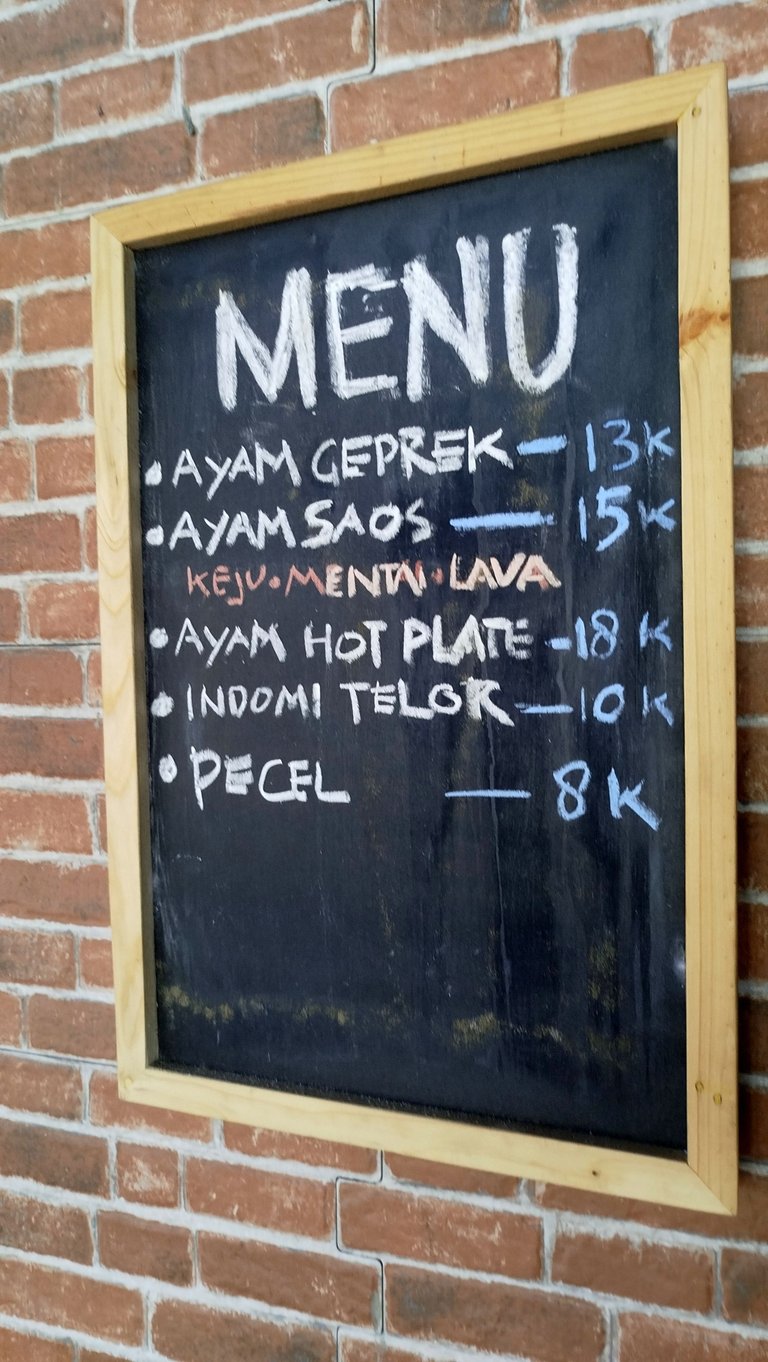 MENU
• AYAM GEPREK — 13K
• AYAM SAOS — 15K
KEJU • MENTAI • LAVA
• AYAM HOT PLATE - 18K
• INDOMI TELOR — 10K
• PECEL — 8K